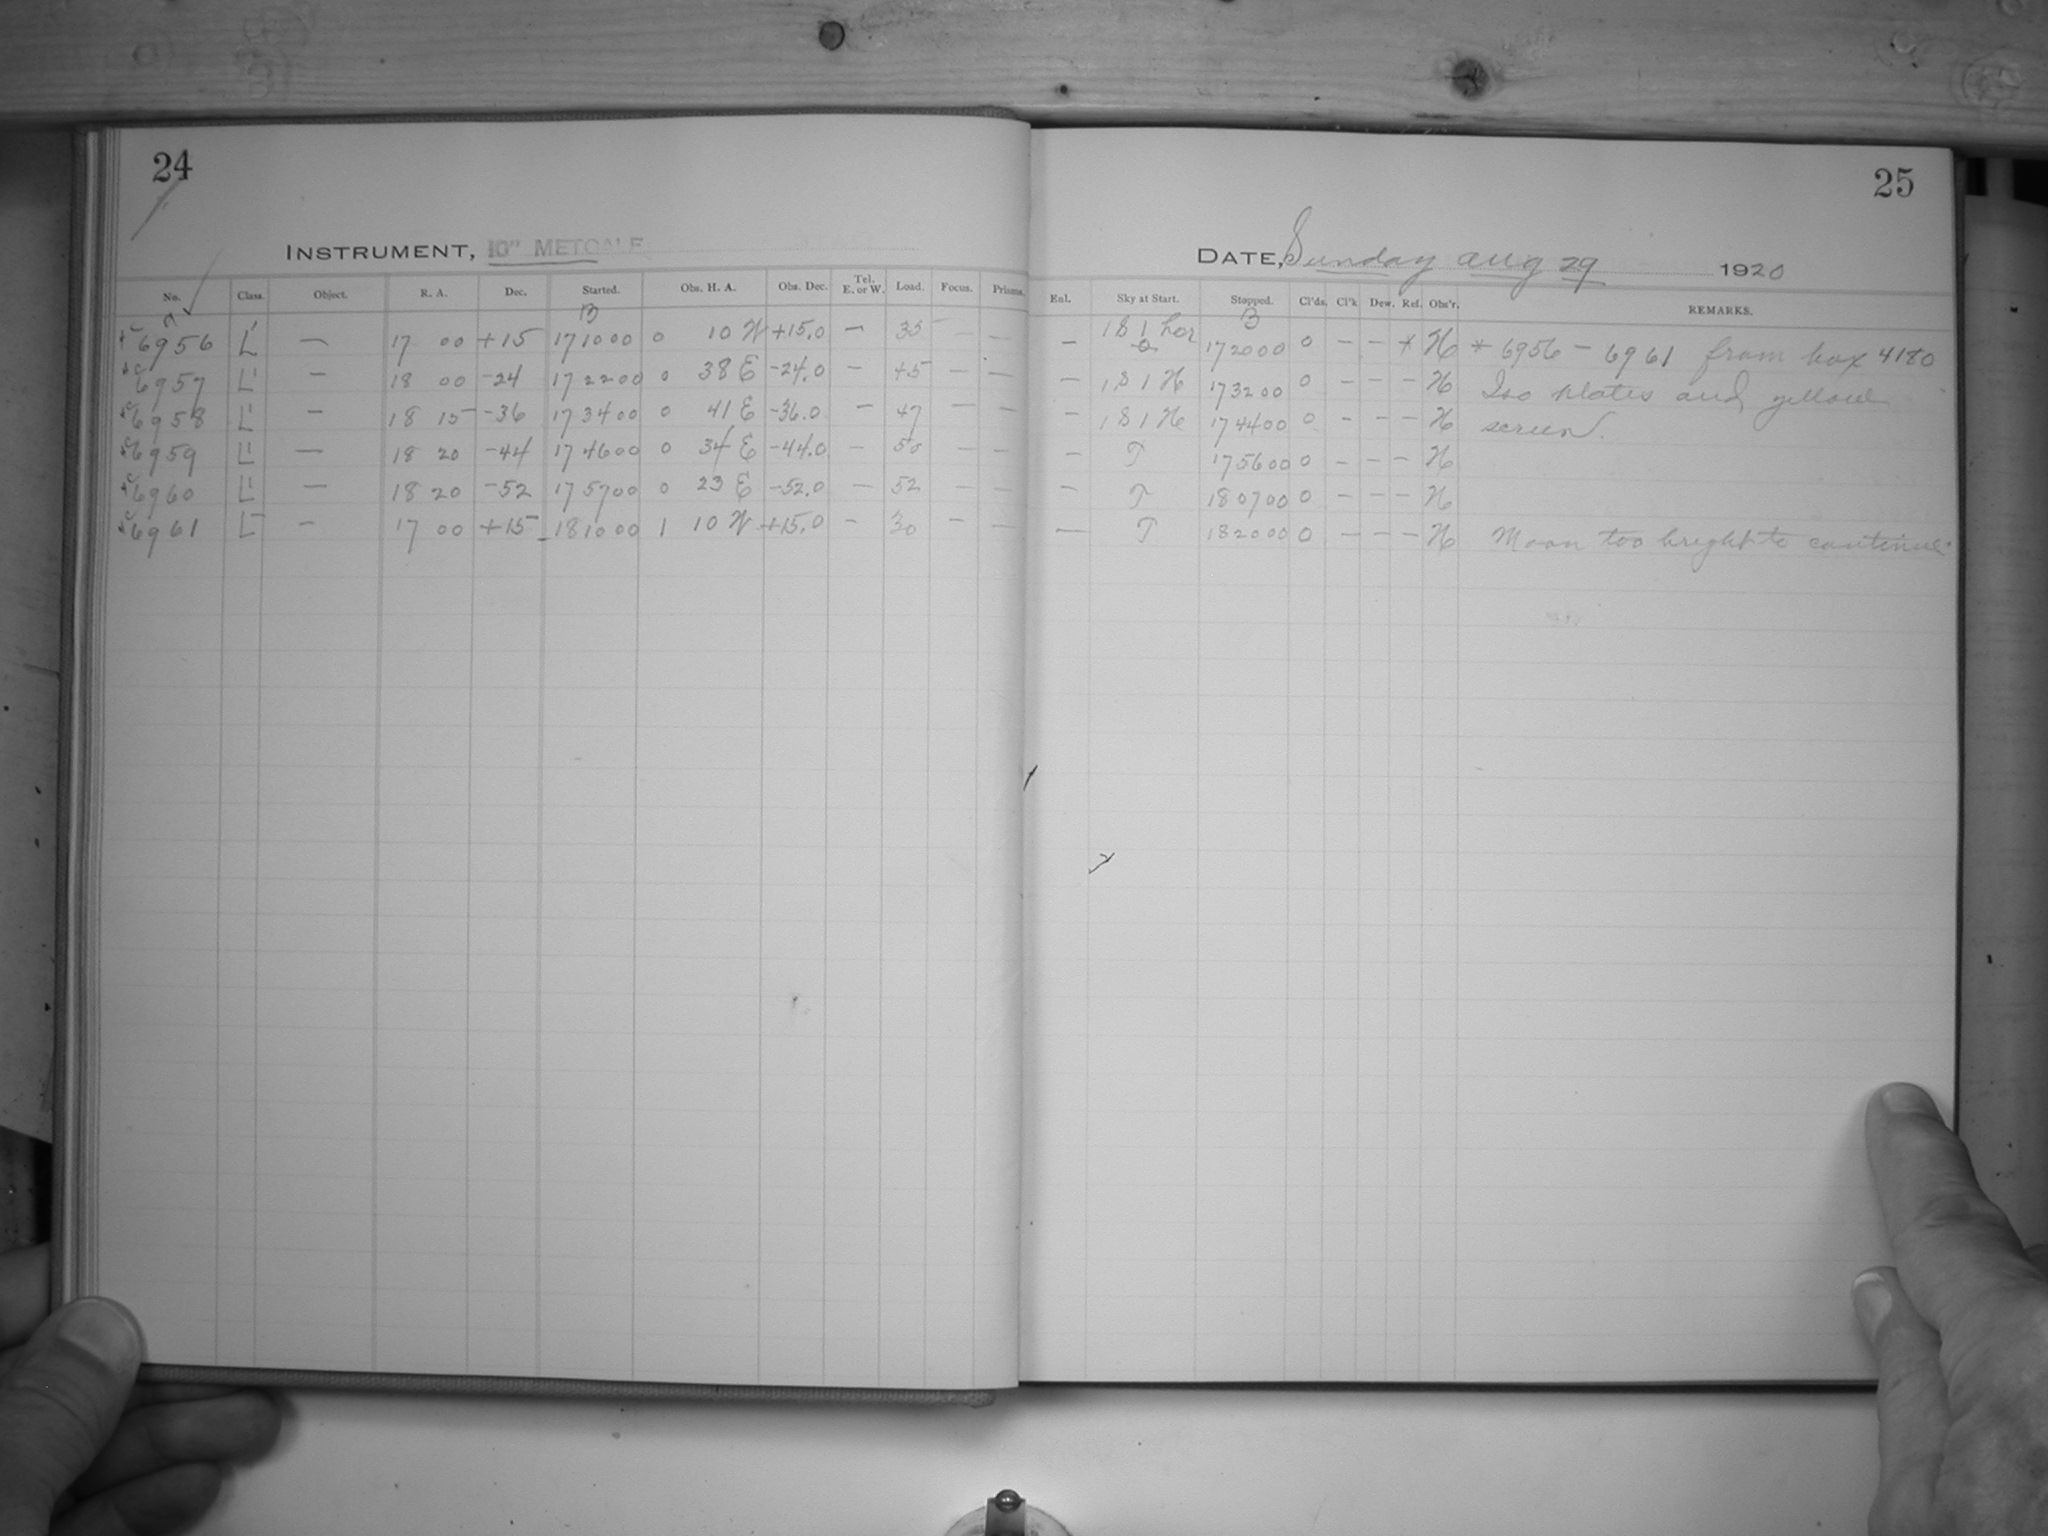 24
INSTRUMENT, 10" METCALF
No. Class. Object. R. A. Dec. Started. Obs. H. A. Obs. Dec. Tel. E. or W. Load. Focus. Prisms.
B
6956 L' — 17 00 +15 171000 0 10 W +15.0 — 35 — —
6957 L' — 18 00 -24 172200 0 38 E -24.0 — 45 — —
6958 L' — 18 15 -36 173400 0 41 E -36.0 — 47 — —
6959 L' — 18 20 -44 174600 0 34 E -44.0 — 50 — —
6960 L' — 18 20 -52 175700 0 23 E -52.0 — 52 — —
6961 L — 17 00 +15 181000 1 10 W +15.0 — 30 — —
25
DATE, Sunday Aug 29 1920
Enl. Sky at Start. Stopped. Cl'ds. Cl'k Dew. Ref. Obs'r. REMARKS.
B
— 181 hor 172000 0 — — * H * 6956 — 6961 from box 4180
— 181 H 173200 0 — — — H Iso plates and yellow
— 181 H 174400 0 — — — H screen.
— T 175600 0 — — — H
— T 180700 0 — — — H
— T 182000 0 — — — H Moon too bright to continue.